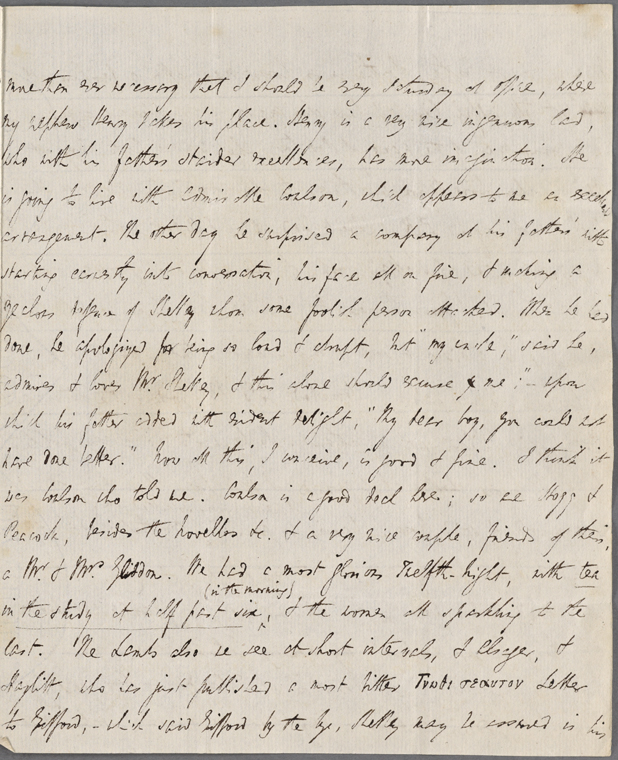 more than ever necessary that I should be every Saturday at office, where
my nephew Henry takes his place. Henry is a very nice ingenuous lad,
who with his father's staider excellences, has more imagination. He
is going to live with Coulson, which appears to me an excellent
arrangement. The other day he surprised a company at his father's with
starting earnestly into conversation, his face all on fire, & making a
zealous defence of Shelley whom some foolish person attacked. When he had
done, he apologized for being so loud & abrupt, but "my uncle," said he,
admires & loves Mr. Shelley, & this alone should excuse me": – upon
which his father added with evident delight, "My dear boy, you could not
have done better." Now all this, I conceive, is good & fine. I think it
was Coulson who told me. Coulson is a good deal here; so are Hogg &
Peacock, besides the Novellos &c. & a very nice couple, friends of theirs,
a Mr. & Mrs. Gliddon. We had a most glorious Twelfth-night, with tea
(in the morning)
in the study at half past six, & the women all sparkling to the
last. The Lambs also we see at short intervals, & Alsager, &
Hazlitt, who has just published a most bitter Γνωθι σεαυτον Letter
to Gifford, – which said Gifford by the bye, Shelley may be assured is his